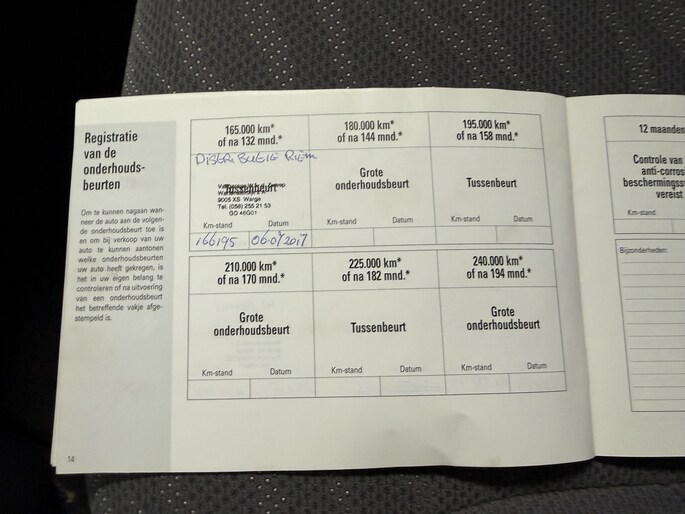 Registratie
van de
onderhouds-
beurten
Om te kunnen nagaan wan-
neer de auto aan de volgen-
de onderhoudsbeurt toe is
en om bij verkoop van uw
auto te kunnen aantonen
welke onderhoudsbeurten
uw auto heeft gekregen, is
het in uw eigen belang te
controleren of na uitvoering
van een onderhoudsbeurt
het betreffende vakje afge-
stempeld is.
14
165.000 km*
of na 132 mnd.*
DISTRIBUTIE RIEM
Tussenbeurt
9005 XS Warga
Tel. (058) 255 21 53
Km-stand Datum
166195 06-07 2017
180.000 km*
of na 144 mnd.*
Grote
onderhoudsbeurt
Km-stand Datum
195.000 km*
of na 158 mnd.*
Tussenbeurt
Km-stand Datum
210.000 km*
of na 170 mnd.*
Grote
onderhoudsbeurt
Km-stand Datum
225.000 km*
of na 182 mnd.*
Tussenbeurt
Km-stand Datum
240.000 km*
of na 194 mnd.*
Grote
onderhoudsbeurt
Km-stand Datum
12 maanden
Controle van
anti-corros
beschermingss
vereist
Km-stand
Bijzonderheden: